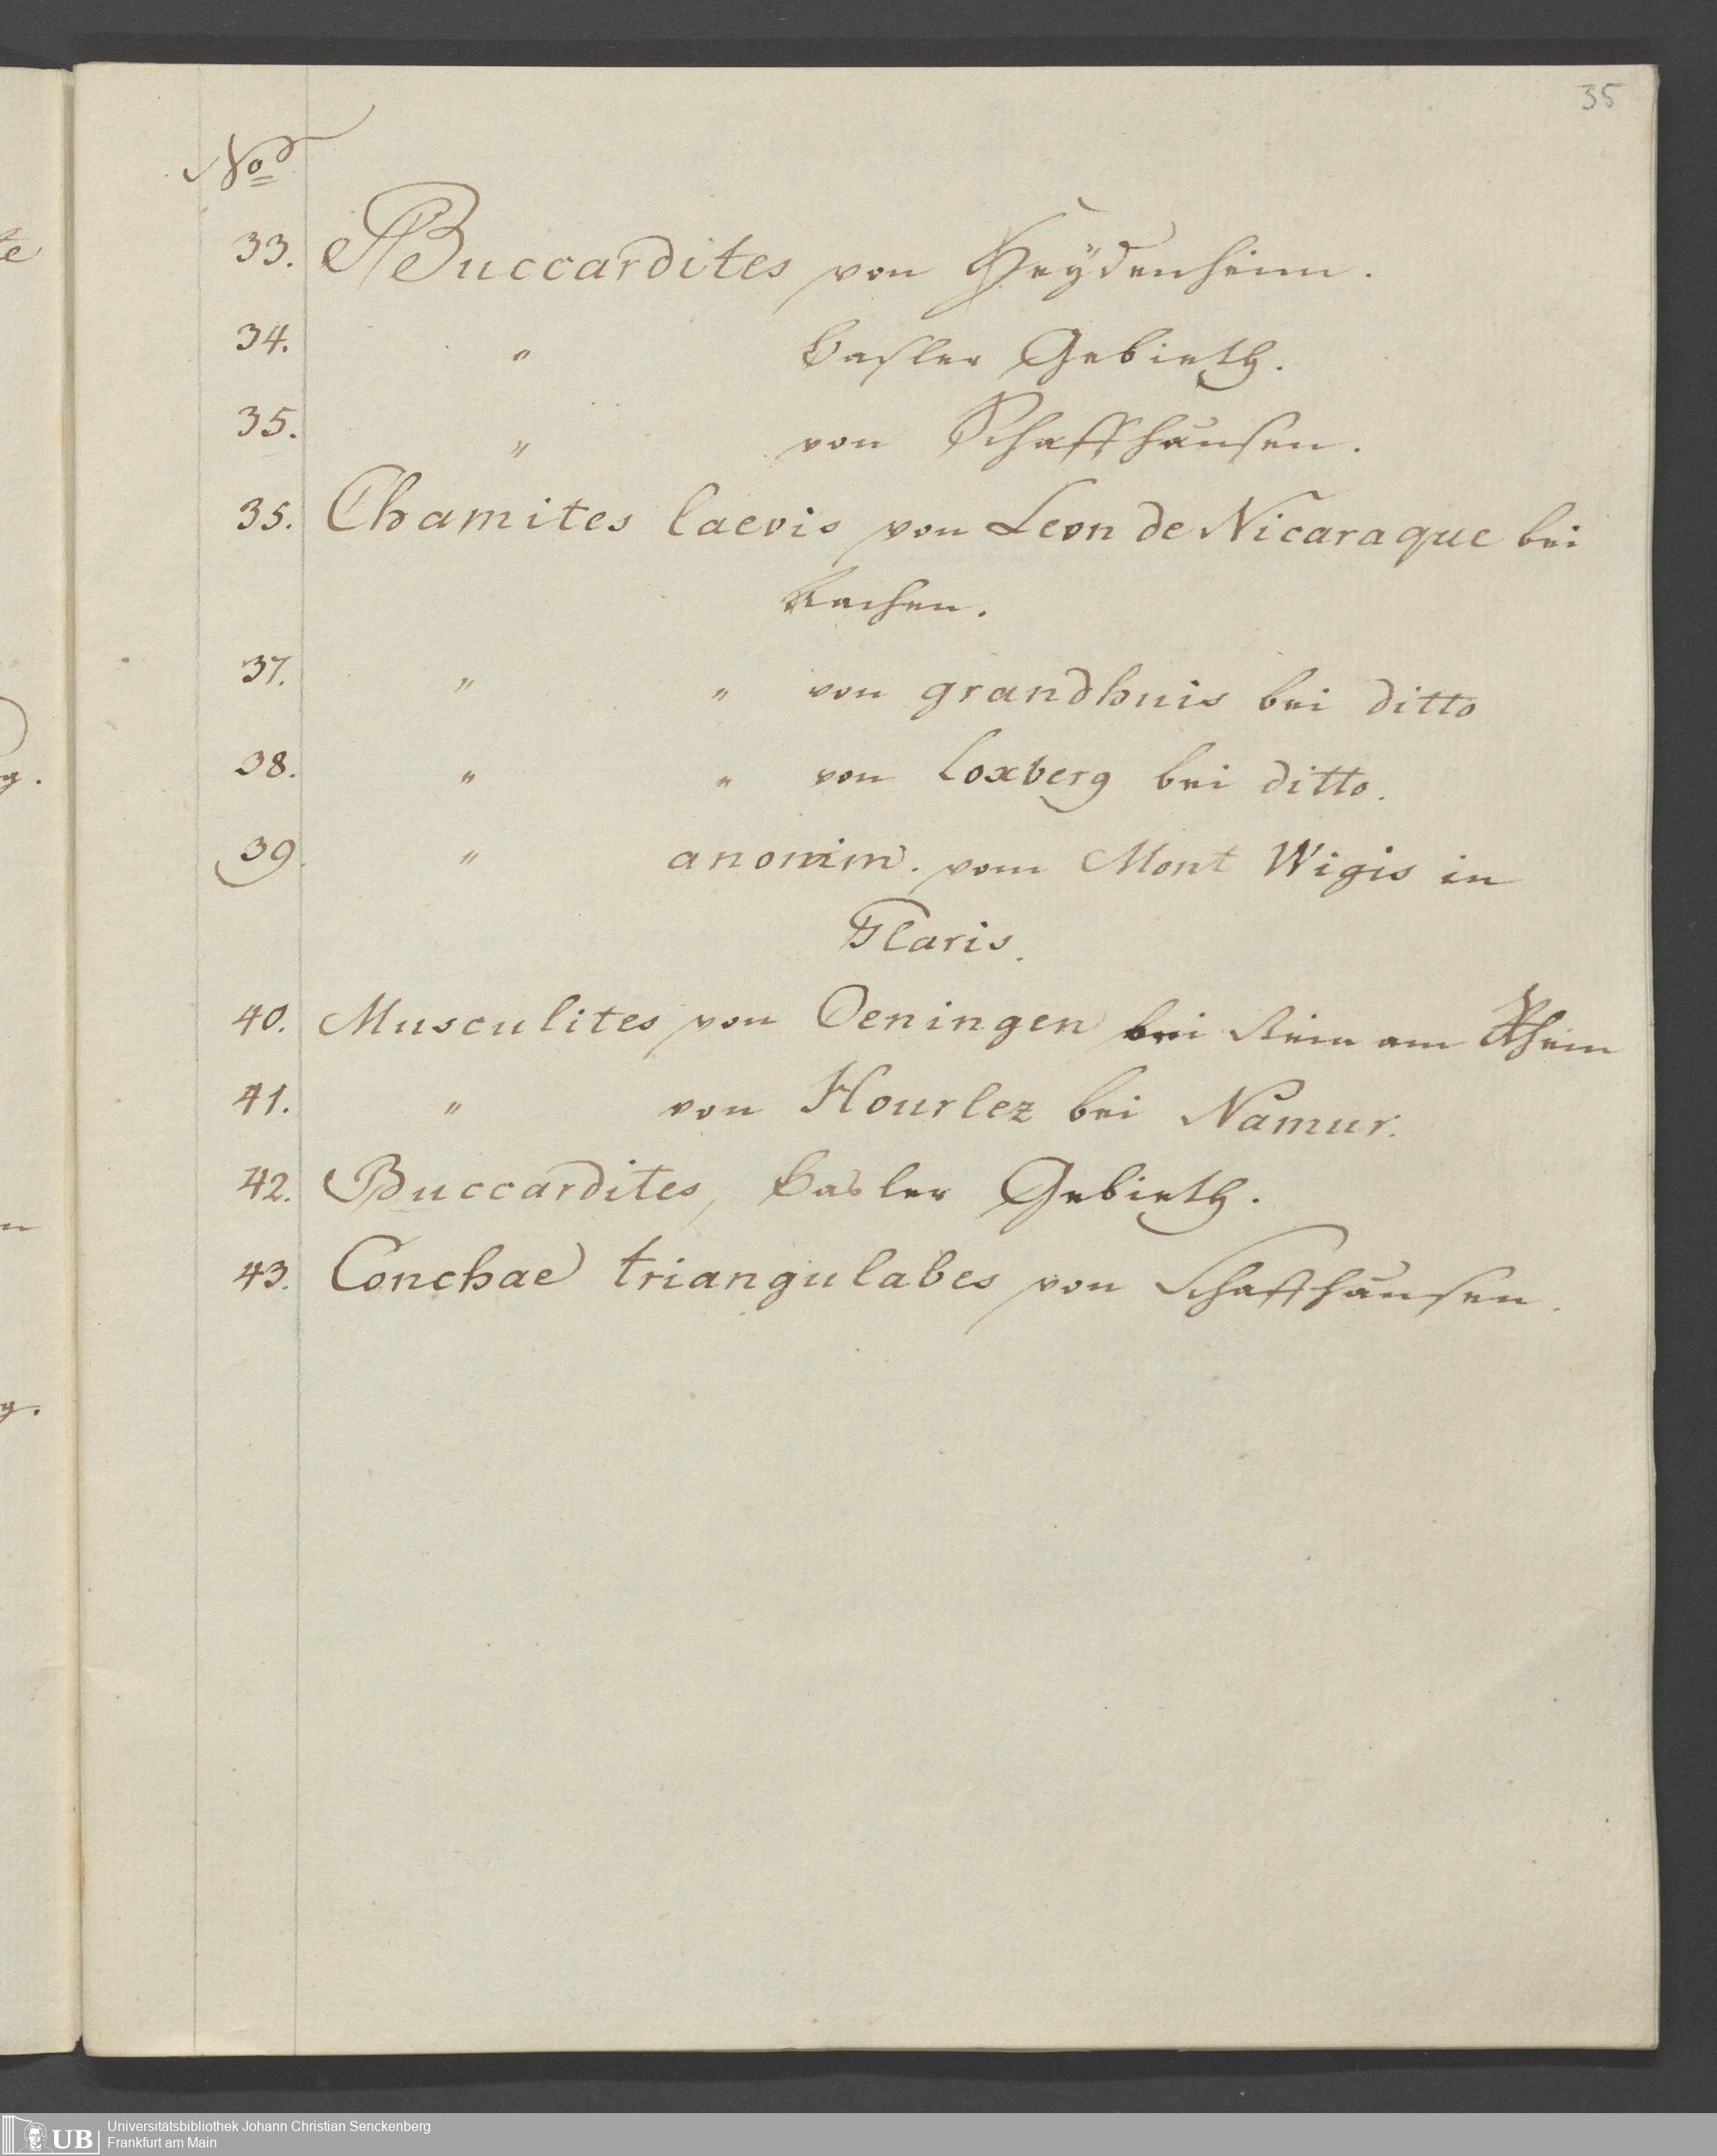 35
No
33. Buccardites von Heÿdenheim.
34. " Basler Gebieth.
35. " von Schaffhausen.
35. Chamites laevis von Leon de Nicaraque bei
Aachen.
37. " " von grandhuis bei ditto
38. " " von Loxberg bei ditto.
39. " anonim. vom Mont Wigis in
Glaris.
40. Musculites von Oeningen bei Stein am Rhein
41. " von Hourlez bei Namur.
42. Buccardites, Basler Gebieth.
43. Conchae triangulabes von Schaffhausen.
te
g.
n
g.
UB Universitätsbibliothek Johann Christian Senckenberg
Frankfurt am Main